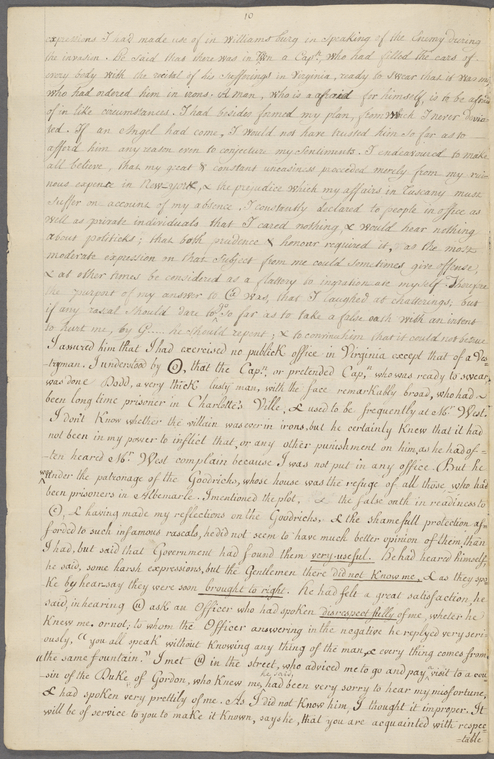 10
expressions I had made use of in Williamsburg in speaking of the Enemy during
the invasion. He said that there was in Town a Capn. who had filled the ears of
every body with the recital of his sufferings in Virginia, ready to swear that it was me,
who had ordered him in irons. A man, who is afraid for himself, is to be afraid
of in like circumstances. I had besides formed my plan, from which I never devia-
ted. If an Angel had come, I would not have trusted him so far as to
afford him any reason even to conjecture my sentiments. I endeavoured to make
all believe, that my great & constant uneasiness proceeded merely from my rui-
nous expence in New-York, & the prejudice which my affairs in Tuscany must
suffer on account of my absence. I constantly declared to people in office as
well as private individuals that I cared nothing, & would hear nothing
about politicks; that both prudence & honour required it, as the most
moderate expression on that subject from me could sometimes give offense,
& at other times be considered as a flattery to ingratiate myself. Therefore
the purport of my answer to was, that I laughed at chatterings; but
if any rascal should dare to go so far as to take a false oath with an intent
to hurt me, by G.... he should repent; & to convince him that it could not be true
I assured him that I had exercised no publick office in Virginia except that of a Ves-
tryman. I understood by that the Capn. or pretended Capn. who was ready to swear,
was one Dodd, a very thick lusty man, with the face remarkably broad, who had
been long time prisoner in Charlotte's Ville, & used to be frequently at Mr. West.
I don't Know whether the villain was ever in irons, but he certainly Knew that it had
not been in my power to inflict that, or any other punishment on him, as he had of-
-ten heared Mr. West complain because I was not put in any office. But he
was under the patronage of the Goodrichs, whose house was the refuge of all those who had
been prisoners in Albemarle. I mentioned the plot, & the false oath in readiness to
& having made my reflections on the Goodrichs, & the shamefull protection af-
forded to such infamous rascals, he did not seem to have much better opinion of them than
I had, but said that Government had found them very useful. He had heared himself,
he said, some harsh expressions, but the Gentlemen there did not Know me, & as they spo-
ke by hear-say they were soon brought to right. He had felt a great satisfaction, he
said, in hearing ask an Officer who had spoken disrespectfully of me, wheter he
Knew me or not; to whom the Officer answering in the negative he replyed very seri-
ously, "You all speak without knowing any thing of the man, & every thing comes from
"the same fountain." I met in the street, who adviced me to go and pay a visit to a cou-
sin of the Duke of Gordon, who Knew me, he said, had been very sorry to hear my misfortune,
& had spoken very prettily of me. As I did not Know him, I thought it improper. It
will be of service to you to make it Known, says he, that you are acquainted with respec-
ntable